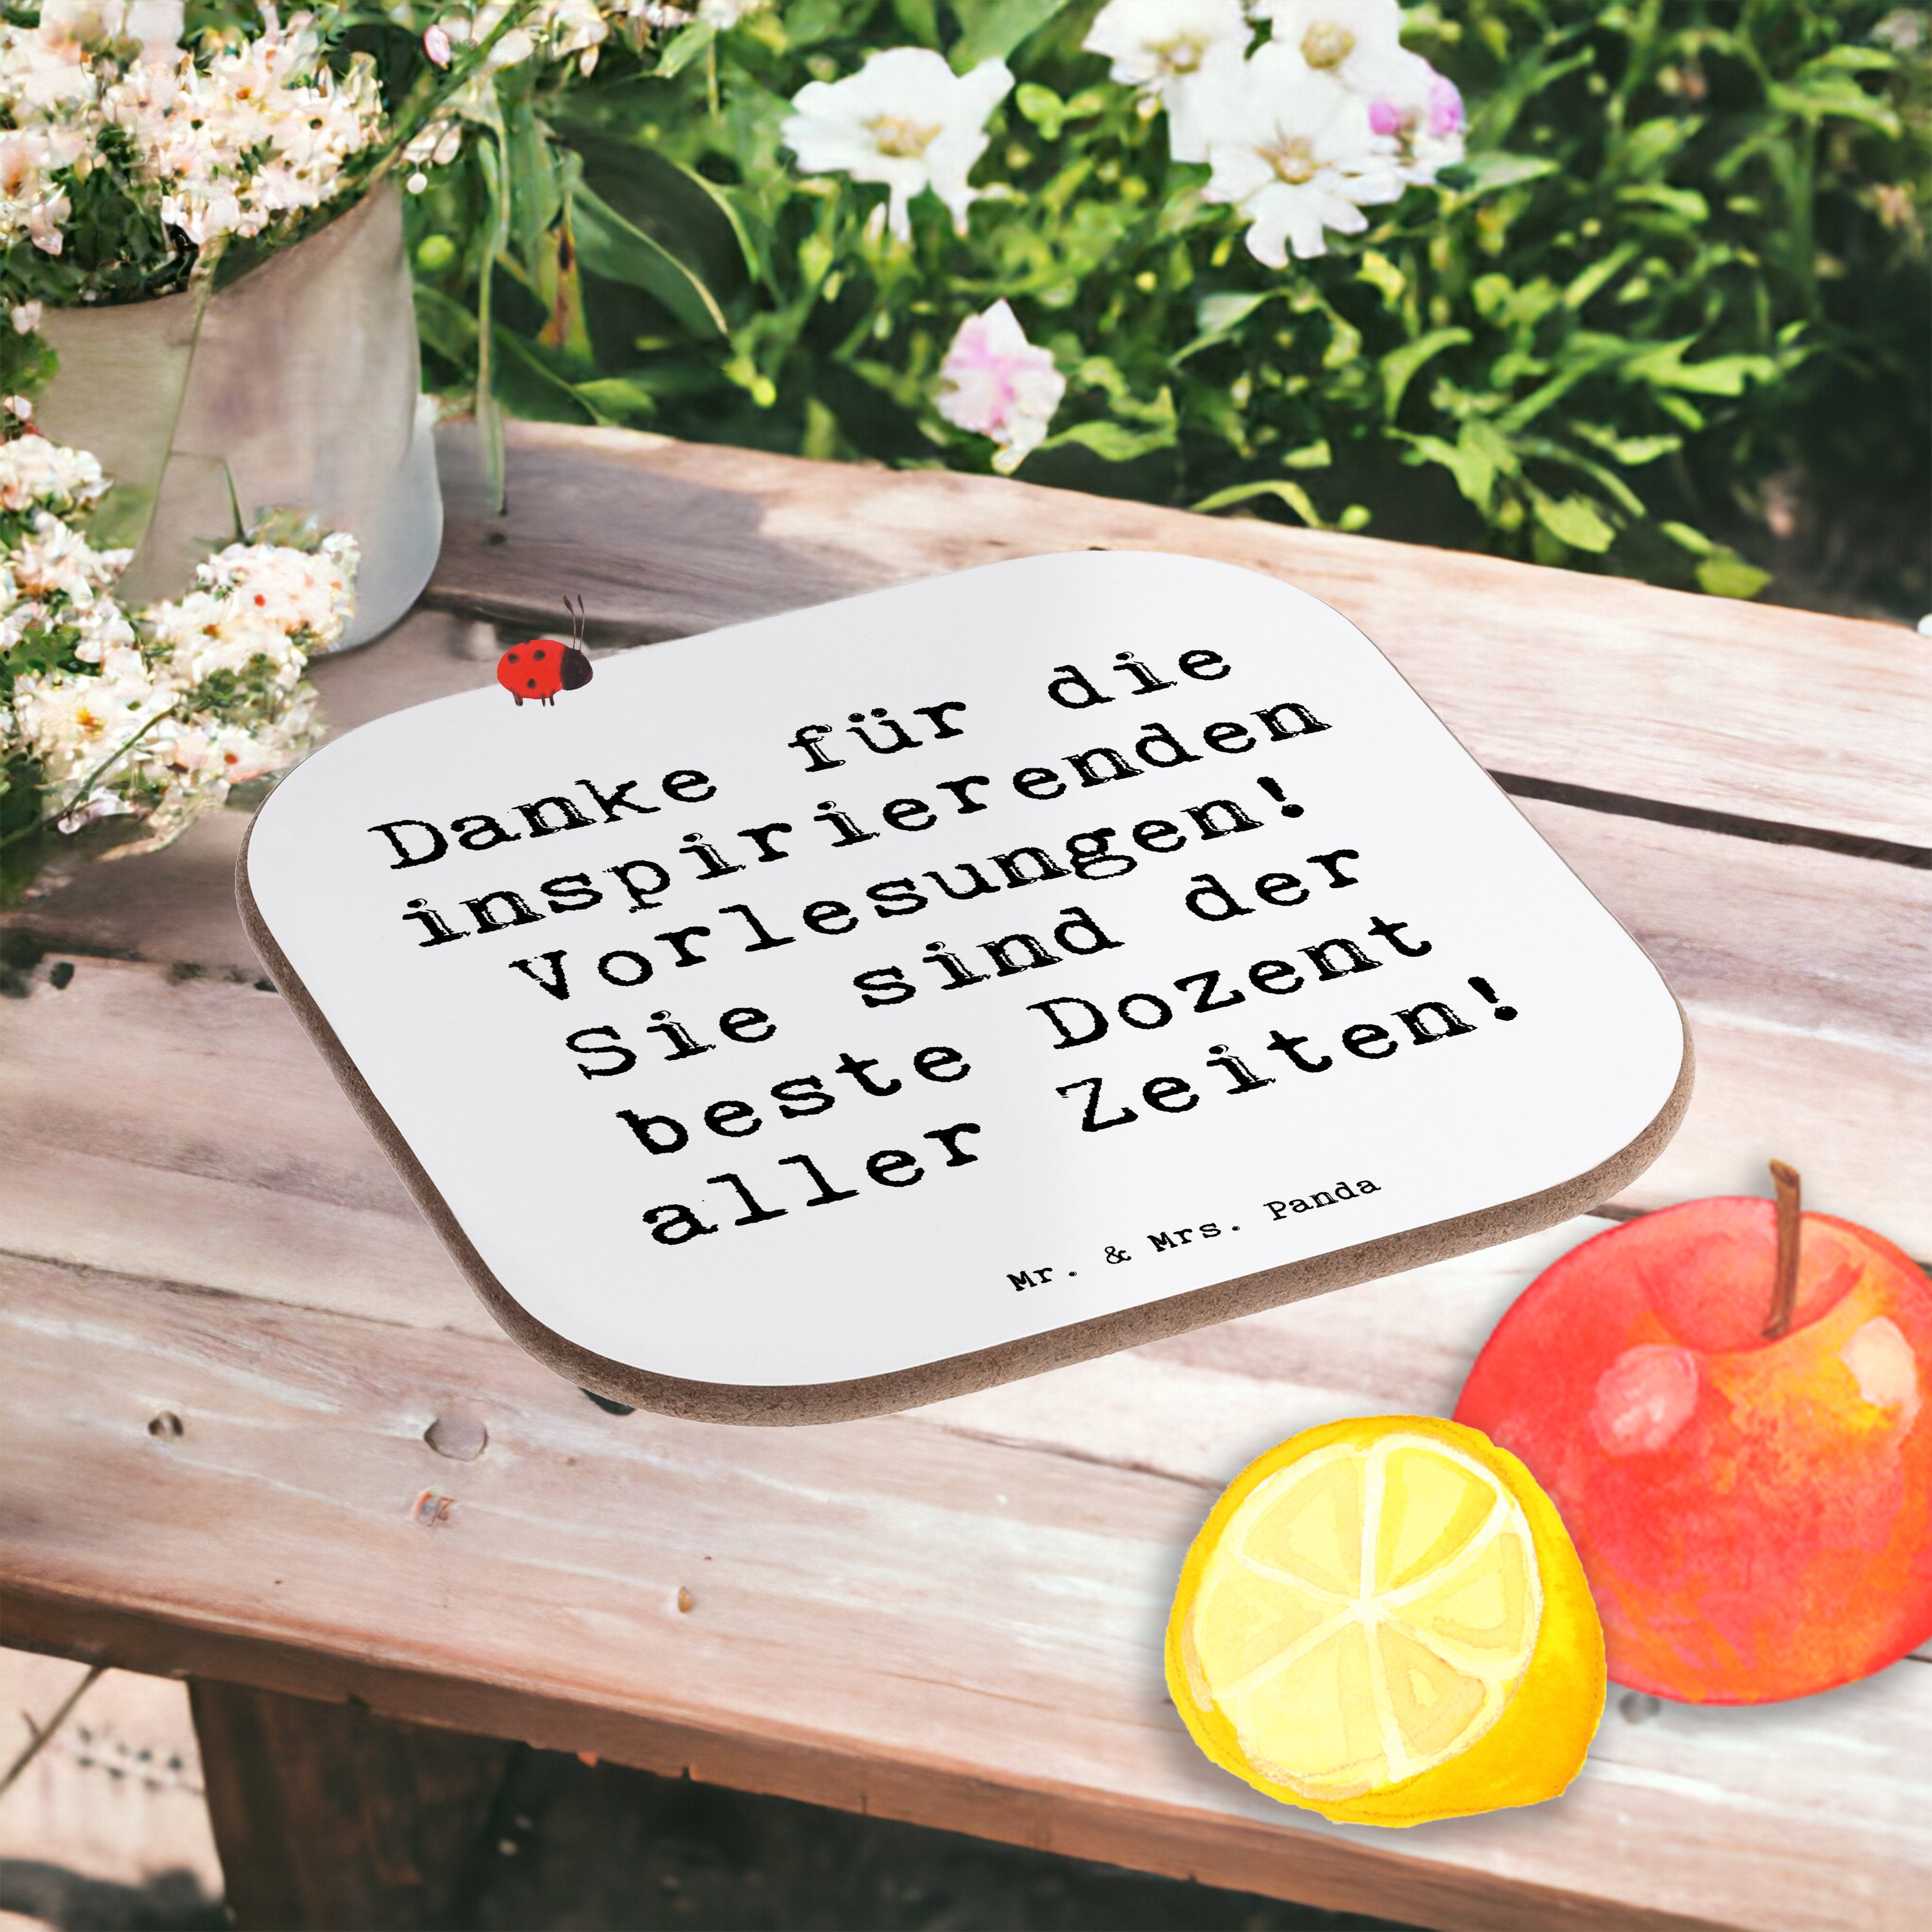 Danke für die
inspirierenden
Vorlesungen!
Sie sind der
beste Dozent
aller Zeiten!
Mr. & Mrs. Panda